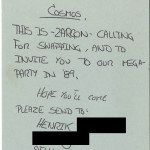 COSMOS.
THIS IS -ZARGON- CALLING
FOR SWAPPING, AND TO
INVITE YOU TO OUR MEGA-
PARTY IN 89.
HOPE YOU'LL COME
PLEASE SEND TO:
HENRIK